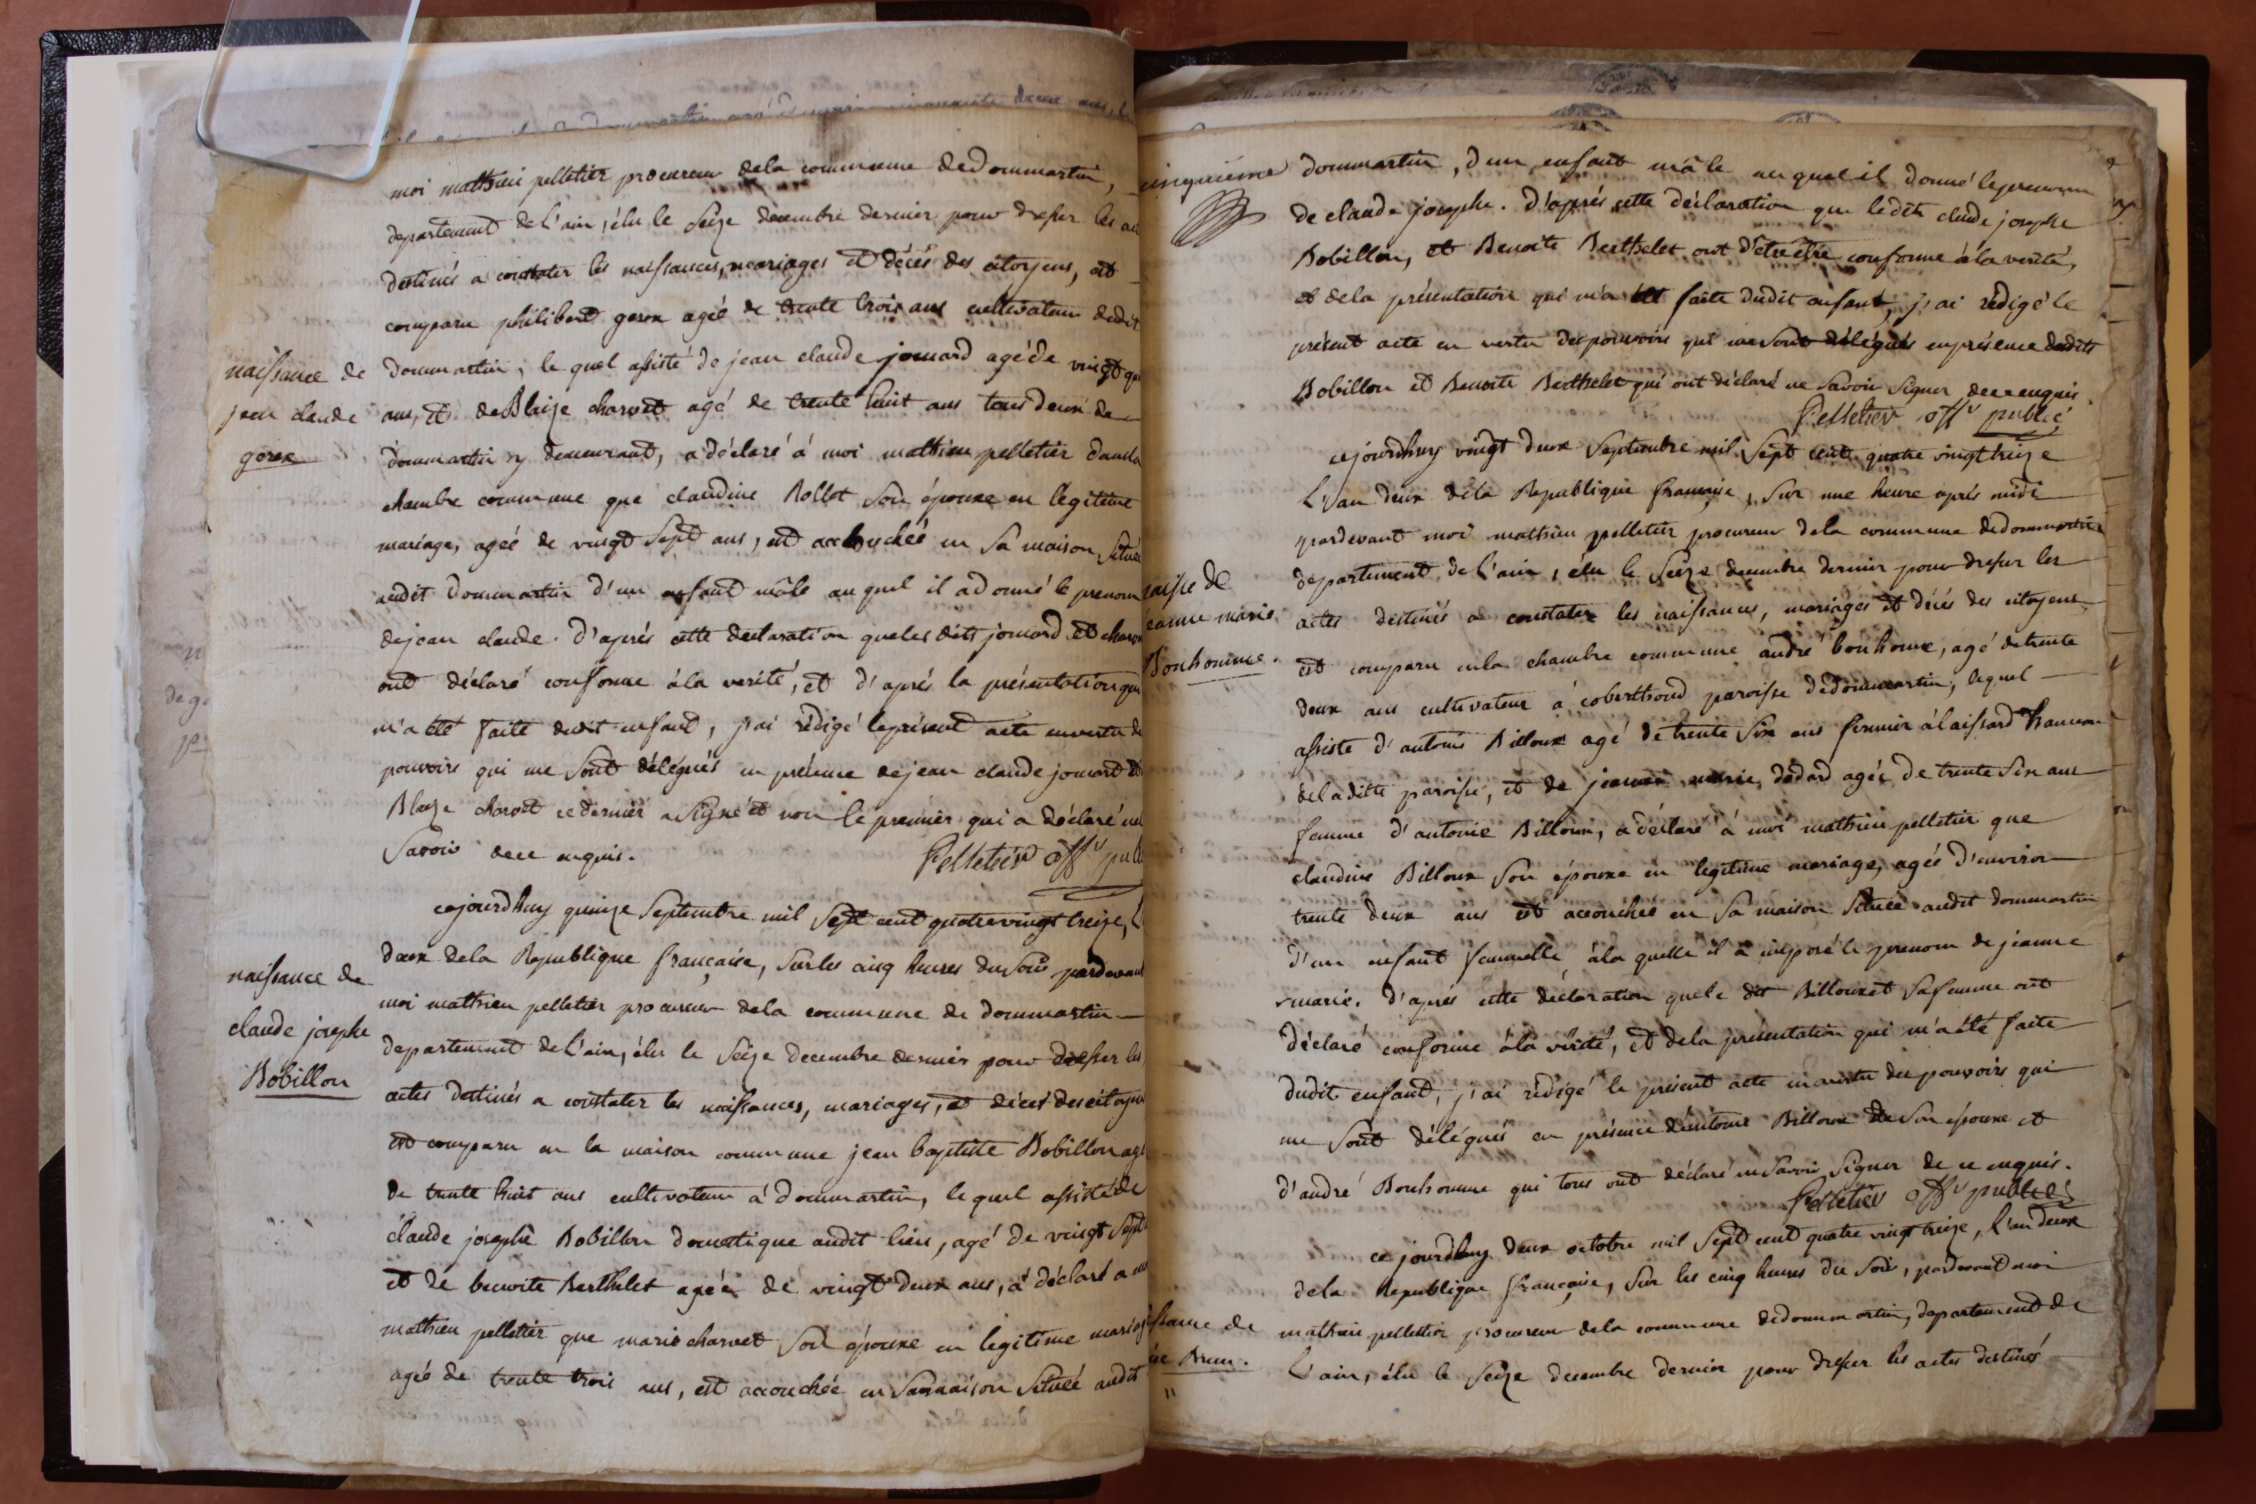 moi mathieu pelletier procureur dela commune de Dommartin,
departement de l'ain, élu le Seize decembre dernier pour dresser les
destinés a constater les naissances, mariages et décés des citoyens, est
comparu philibert gerox agé de trente trois ans cultivateur dudit
naissance de
jean claude
gerox
dommartin, le quel assisté de jean claude jomard agé de vingt
ans, et de Blaize charvet agé de trente huit ans tous deux de
dommartin y demeurant, a déclaré à moi mathieu pelletier dans la
chambre commune que claudine Rollet son épouxe en légitime
mariage, agéé de vingt Sept ans, est accouchéé en Sa maison Située
audit dommartin d'un enfant mâle au quel il a donné le prenom
de jean claude. d'après cette declaration que les dits jomard et
ont déclaré conforme à la verité, et d'après la présentation qui
m'a été faite dudit enfant, j'ai rédigé le présent acte en vertu de
pouvoirs qui me Sont délégués en présence de jean claude jomard et
Blaize charvet ce dernier a Signé et non le premier qui a déclaré ne
Savoir de ce enquis.
Pelletier offr publ
cejourdhuy quinze Septembre mil Sept cent quatrevingt treize,
deux dela Republique française, Sur les cinq heures du Soir pardevant
naissance de
claude josephe
Bobillon
moi mathieu pelletier procureur dela commune de dommartin
departement de l'ain, élu le Seize decembre dernier pour dresser les
actes destinés a constater les naissances, mariages, et décés des citoyens
est comparu en la maison commune jean baptiste Bobillon agé
de trente huit ans cultivateur à dommartin, le quel assisté de
claude josephe Bobillon domestique audit lieu, agé de vingt Sept
et de benoite Berthelet agéé de vingt deux ans, a déclaré a moi
mathieu pelletier que marie charvet Son épouxe en legitime mariage
agéé de trente trois ans, est accouchéé en Sa maison Située audit
cinquieme
dommartin, d'un enfant mâle au quel il donné le prenom
de claude josephe. d'après cette déclaration que ledit claude josephe
Bobillon, et Benoite Berthelet ont d'etre être conforme à la verité,
et dela présentation qui m'a été faite dudit enfant, j'ai rédigé le
présent acte en vertu des pouvoirs qui me sont délégués en présence desdits
Bobillon et Benoite Berthelet qui ont déclaré ne Savoir Signer de ce enquis.
Pelletier offr public
cejourdhuy vingt deux Septembre mil Sept cent quatre vingt treize
L'an deux dela Republique française, Sur une heure après midi
pardevant moi mathieu pelletier procureur dela commune de dommartin
departement de l'ain, élu le Seize decembre dernier pour dresser les
naisse de
jeanne marie
Bonhomme.
actes destinés a constater les naissances, mariages et décés des citoyens
est comparu en la chambre commune andré bonhomme, agé de trente
deux ans cultivateur à coberthoud paroisse de dommartin, lequel
assisté d'antoine Billoux agé de trente Six ans fermier à laissard hameau
de la ditte paroisse, et de jeanne marie dedard agée de trente Six ans
femme d'antoine Billoux, a déclaré à moi mathieu pelletier que
claudine Billoux Son épouxe en legitime mariage, agéé d'environ
trente deux ans est accouchéé en Sa maison Située audit dommartin
d'un enfant femmelle à la quelle il a imposé le prenom de jeanne
marie. d'après cette déclaration que le dit Billoux et Sa femme ont
déclaré conforme à la vérité, et dela présentation qui m'a été faite
dudit enfant, j'ai rédigé le présent acte en vertu des pouvoirs qui
me Sont délégués en présence d'antoine Billoux de Son épouxe et
d'andré Bonhomme qui tous ont déclaré ne Savoir Signer de ce enquis.
Pelletier offr public
ce jourdhuy deux octobre mil Sept cent quatre vingt treize, l'an deux
dela Republique française, Sur les cinq heures du Soir, pardevant moi
ssance de
Brun.
mathieu pelletier procureur dela commune de dommartin, departement de
L'ain, élu le Seize decembre dernier pour dresser les actes destinés